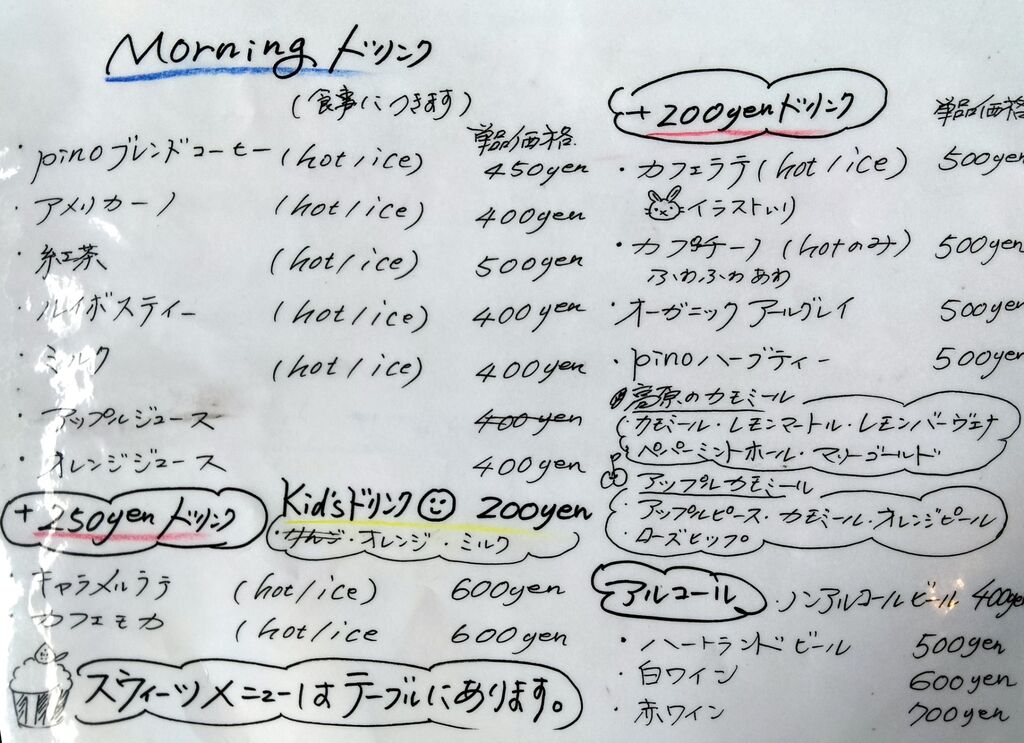 Morning ドリンク
(食事につきます)
単品価格
・pinoブレンドコーヒー (hot/ice) 450yen
・アメリカーノ (hot/ice) 400yen
・紅茶 (hot/ice) 500yen
・ルイボスティー (hot/ice) 400yen
・ミルク (hot/ice) 400yen
・アップルジュース 400yen
・オレンジジュース 400yen
+250yenドリンク
・キャラメルラテ (hot/ice) 600yen
・カフェモカ (hot/ice 600yen
Kid'sドリンク 200yen
・りんご・オレンジ・ミルク
スウィーツメニューはテーブルにあります。
+200yenドリンク 単品価格
・カフェラテ (hot/ice) 500yen
イラスト入り
・カプチーノ (hotのみ) 500yen
ふわふわあわ
・オーガニック アールグレイ 500yen
・pinoハーブティー 500yen
高原のカモミール
カモミール・レモンマートル・レモンバーヴェナ
ペパーミントホール・マリーゴールド
アップルカモミール
アップルピース・カモミール・オレンジピール
ローズヒップ
アルコール
・ノンアルコールビール 400ye
・ハートランドビール 500yen
・白ワイン 600yen
・赤ワイン 700yen